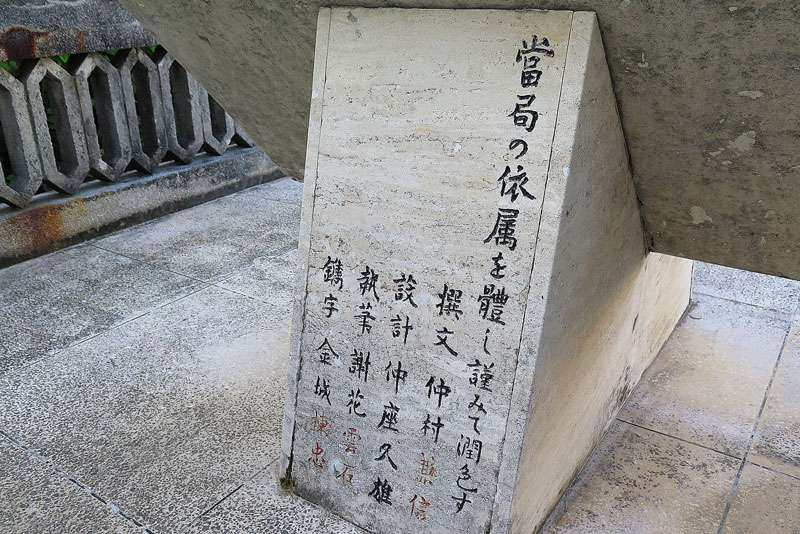 當局の依属を體し謹みて潤色す
撰文 仲村 信
設計 仲座久雄
執筆 謝花雲石
鐫字 金城 忠